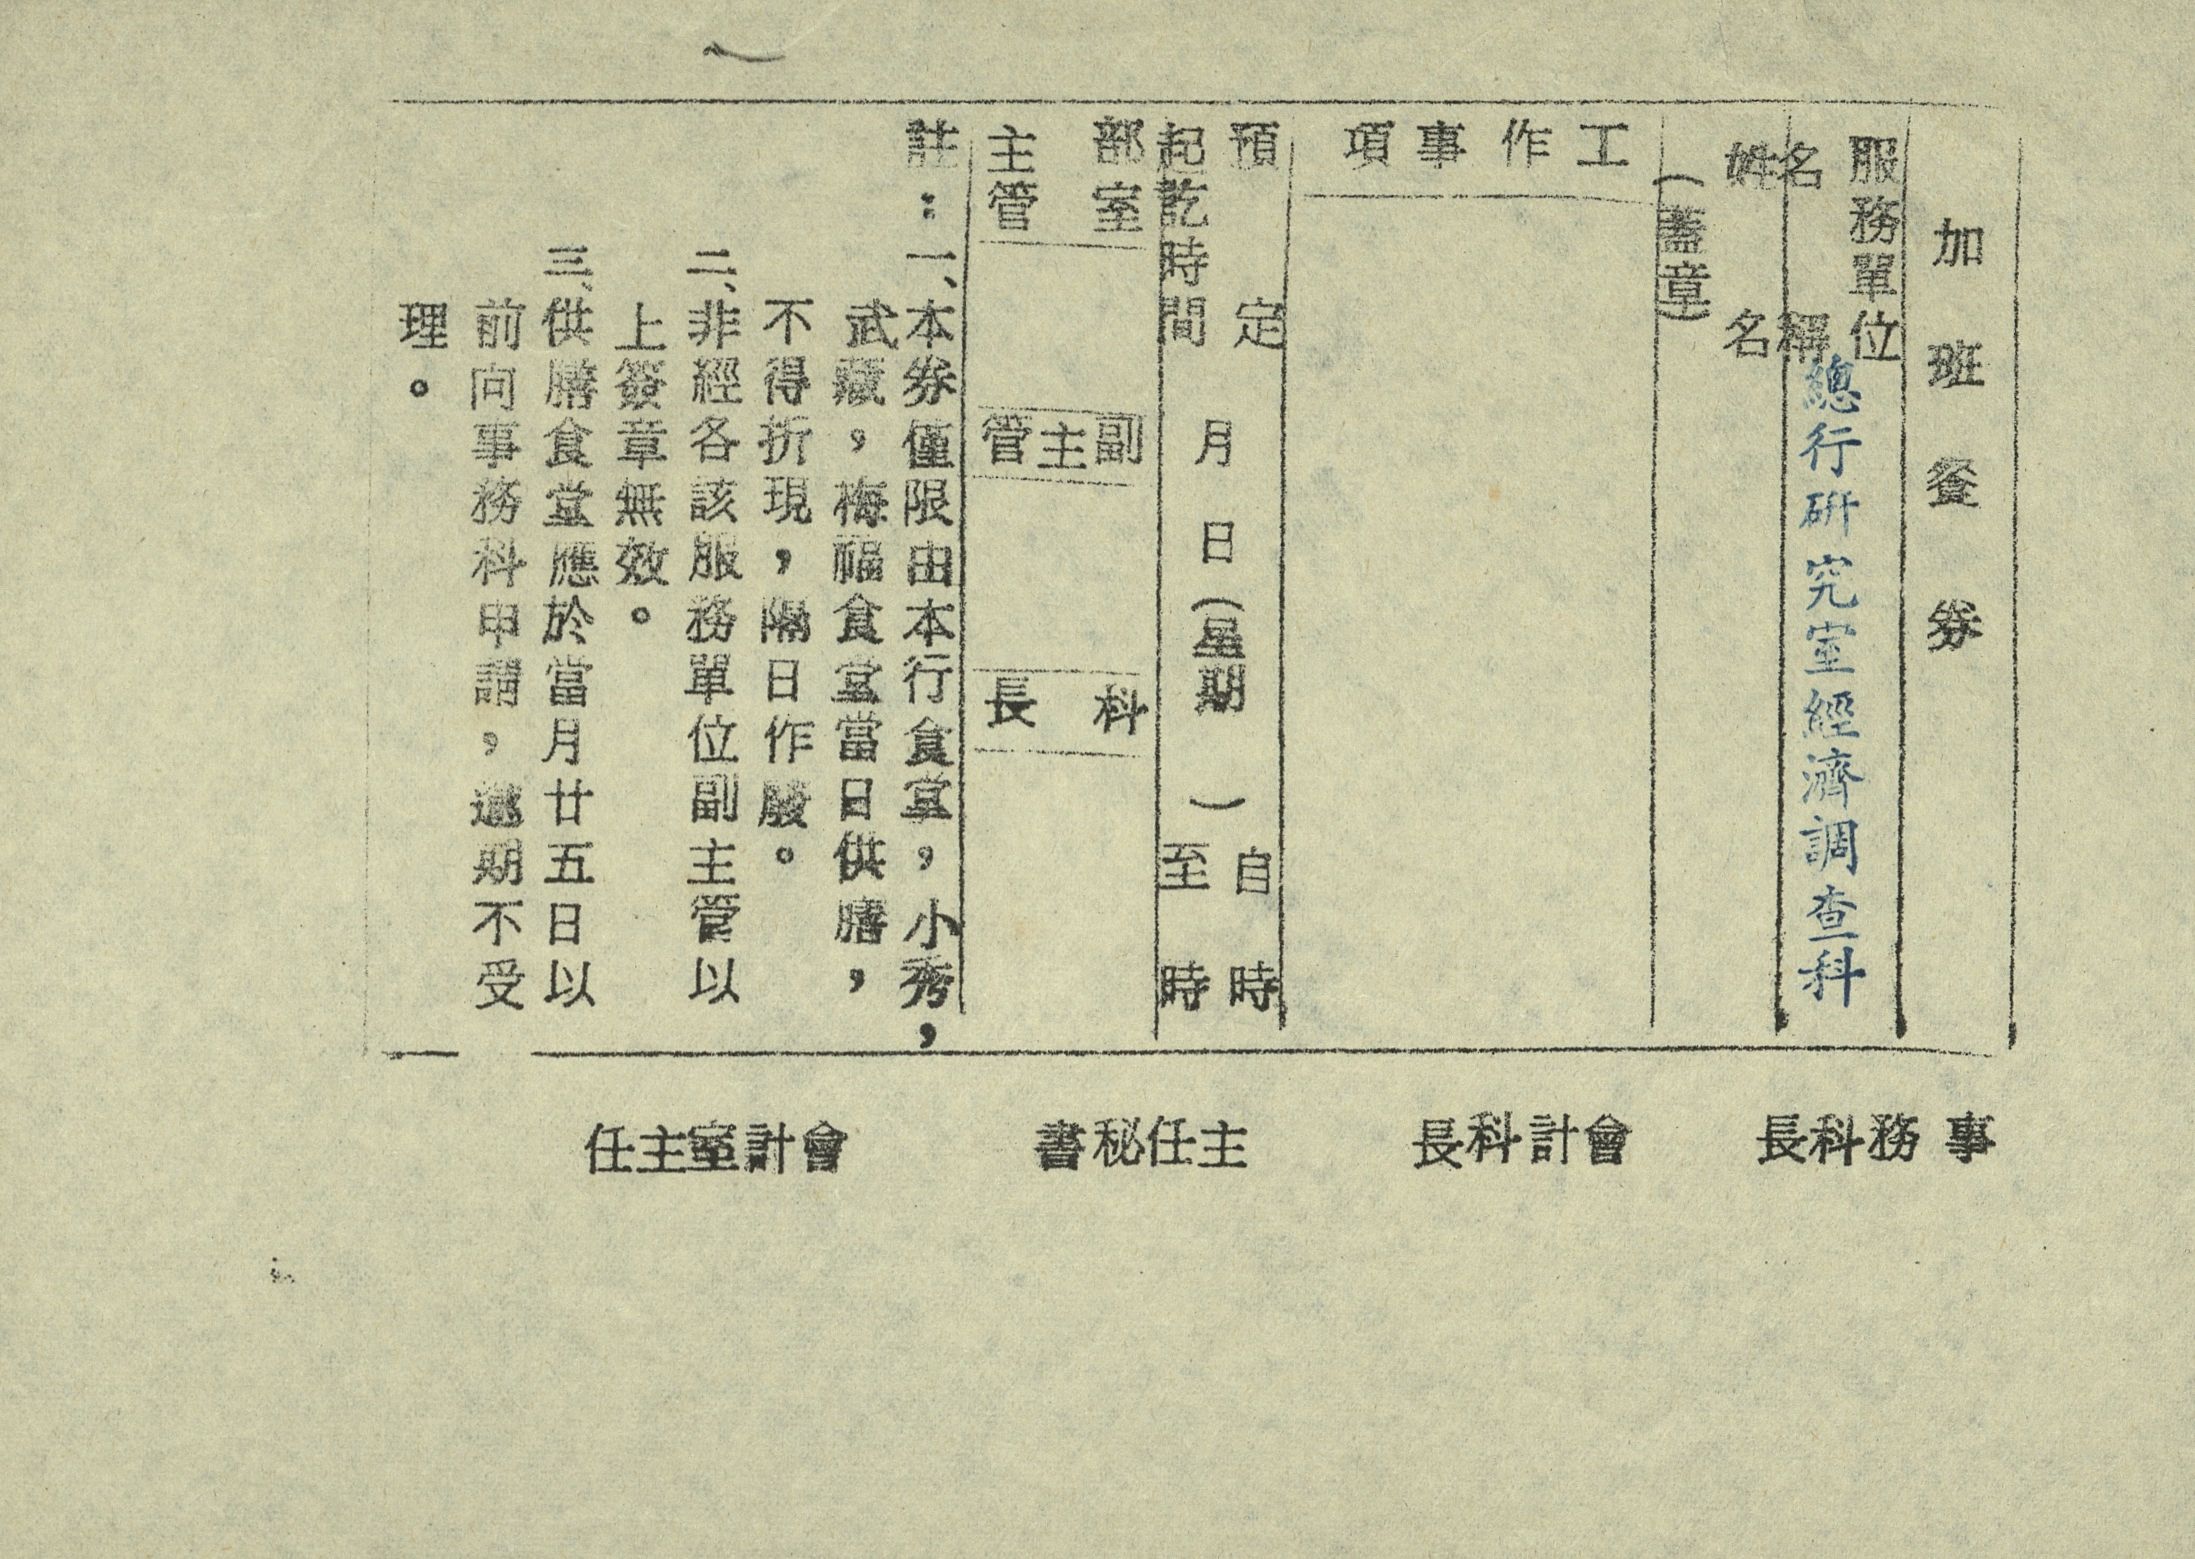 加班餐券
服務單位名稱
總行研究室經濟調查科
姓名
(蓋章)
工作事項
預定起訖時間
月日(星期)
自時
至時
部室主管
副主管
科長
註：一、本券僅限由本行食堂，小秀，
武藏，梅福食堂當日供膳，
不得折現，隔日作廢。
二、非經各該服務單位副主管以
上簽章無效。
三、供膳食堂應於當月廿五日以
前向事務科申請，逾期不受
理。
事務科長
會計科長
主任秘書
會計室主任